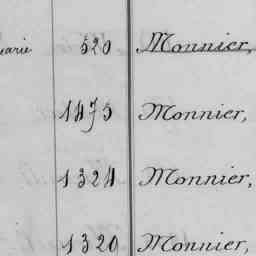 520 Monnier,
1475 Monnier,
1324 Monnier,
1320 Monnier,